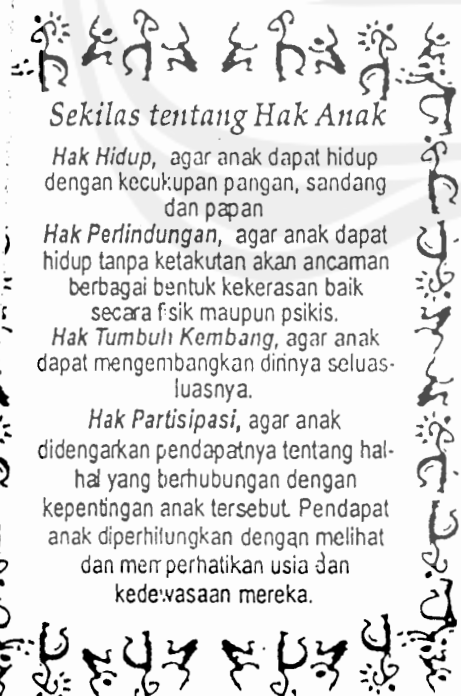 Sekilas tentang Hak Anak
Hak Hidup, agar anak dapat hidup
dengan kecukupan pangan, sandang
dan papan
Hak Perlindungan, agar anak dapat
hidup tanpa ketakutan akan ancaman
berbagai bentuk kekerasan baik
secara fisik maupun psikis.
Hak Tumbuh Kembang, agar anak
dapat mengembangkan dirinya seluas-
luasnya.
Hak Partisipasi, agar anak
didengarkan pendapatnya tentang hal-
hal yang berhubungan dengan
kepentingan anak tersebut. Pendapat
anak diperhitungkan dengan melihat
dan memperhatikan usia dan
kedewasaan mereka.